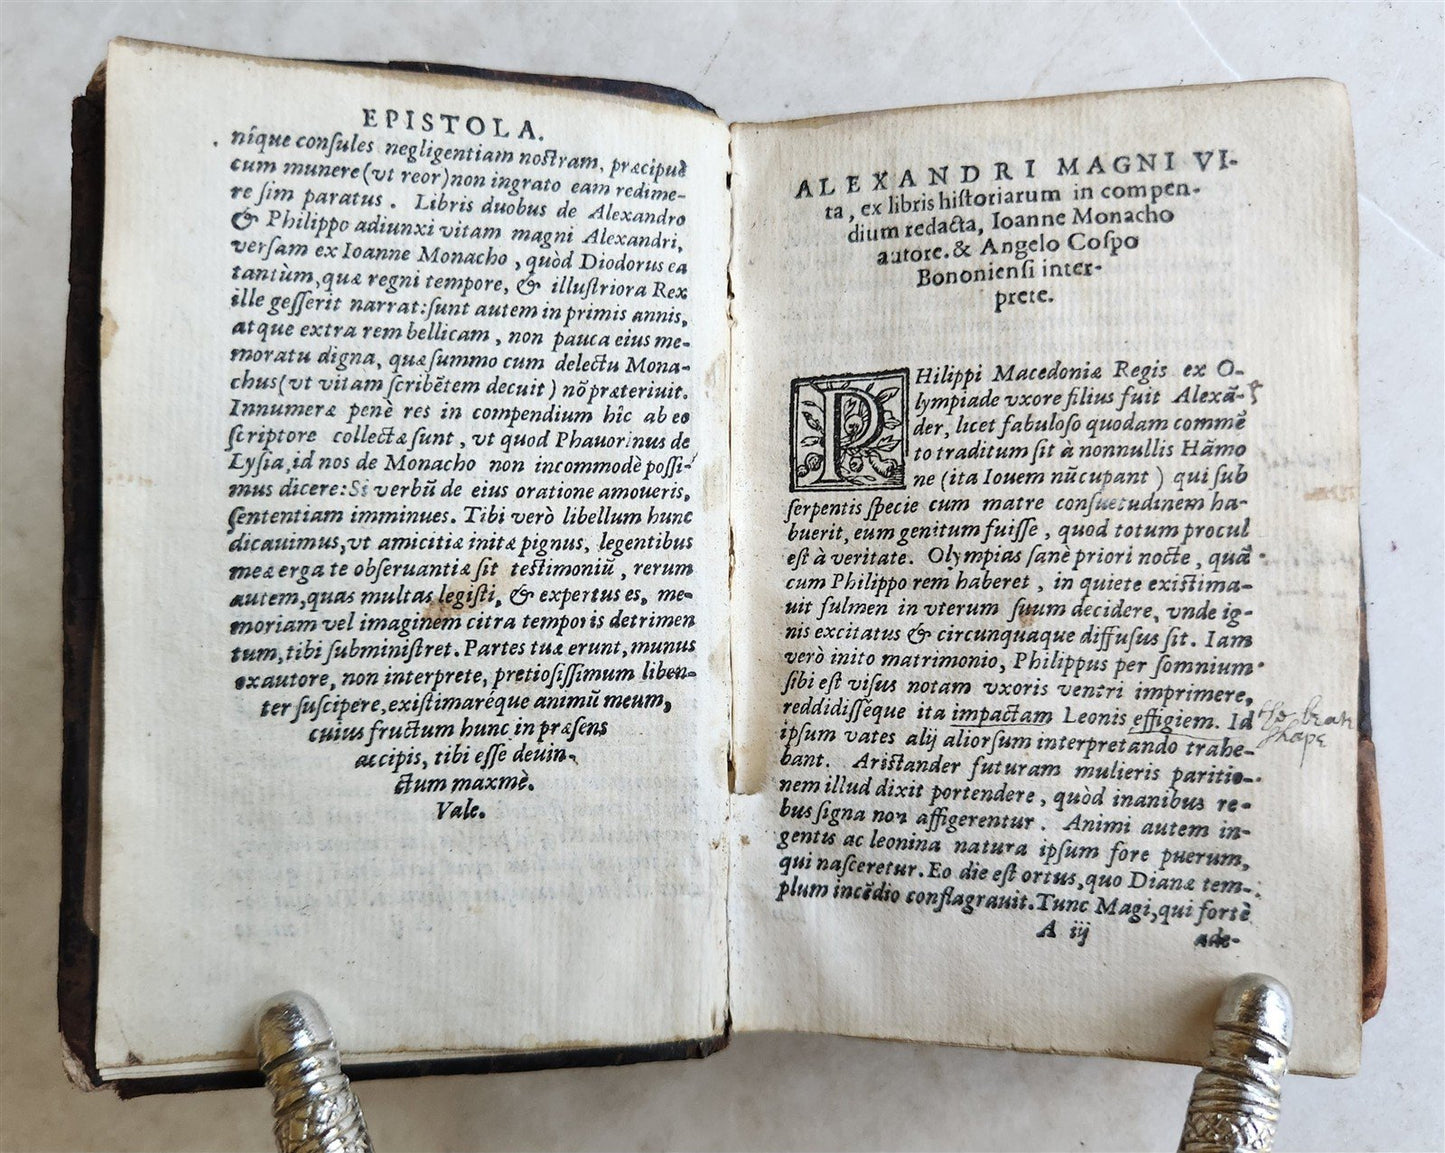 EPISTOLA.
nique conſules negligentiam noſtram, præcipuè
cum munere (vt reor) non ingrato eam redime-
re ſim paratus. Libris duobus de Alexandro
& Philippo adiunxi vitam magni Alexandri,
verſam ex Ioanne Monacho, quòd Diodorus ea
tantùm, quæ regni tempore, & illuſtriora Rex
ille geſſerit narrat: ſunt autem in primis annis,
atque extra rem bellicam, non pauca eius me-
moratu digna, quæ ſummo cum delectu Mona-
chus (vt vitam ſcribētem decuit) nō præteriuit.
Innumeræ penè res in compendium hîc ab eo
ſcriptore collectæ ſunt, vt quod Phauorinus de
Lyſia, id nos de Monacho non incommodè poſſi-
mus dicere: Si verbū de eius oratione amoueris,
ſententiam imminues. Tibi verò libellum hunc
dicauimus, vt amicitiæ initæ pignus, legentibus
meæ erga te obſeruantiæ ſit teſtimoniū, rerum
autem, quas multas legiſti, & expertus es, me-
moriam vel imaginem citra temporis detrimen
tum, tibi ſubminiſtret. Partes tuæ erunt, munus
ex autore, non interprete, pretioſiſſimum liben-
ter ſuſcipere, exiſtimareque animū meum,
cuius fructum hunc in præſens
accipis, tibi eſſe deuin-
ctum maxmè.
Vale.
ALEXANDRI MAGNI VI-
ta, ex libris hiſtoriarum in compen-
dium redacta, Ioanne Monacho
autore. & Angelo Coſpo
Bononienſi inter-
prete.
PHilippi Macedoniæ Regis ex O-
lympiade vxore filius fuit Alexā-
der, licet fabuloſo quodam commē
to traditum ſit à nonnullis Hāmo
ne (ita Iouem nūcupant) qui ſub
ſerpentis ſpecie cum matre conſuetudinem ha-
buerit, eum genitum fuiſſe, quod totum procul
eſt à veritate. Olympias ſanè priori nocte, quā
cum Philippo rem haberet, in quiete exiſtima-
uit fulmen in vterum ſuum decidere, vnde ig-
nis excitatus & circunquaque diffuſus ſit. Iam
verò inito matrimonio, Philippus per ſomnium
ſibi eſt viſus notam vxoris ventri imprimere,
reddidiſſéque ita impactam Leonis effigiem. Id
ipſum vates alij aliorſum interpretando trahe-
bant. Ariſtander futuram mulieris paritio-
nem illud dixit portendere, quòd inanibus re-
bus ſigna non affigerentur. Animi autem in-
gentis ac leonina natura ipſum fore puerum,
qui naſceretur. Eo die eſt ortus, quo Dianæ tem-
plum incēdio conflagrauit. Tunc Magi, qui fortè
A iij
ade-
shape